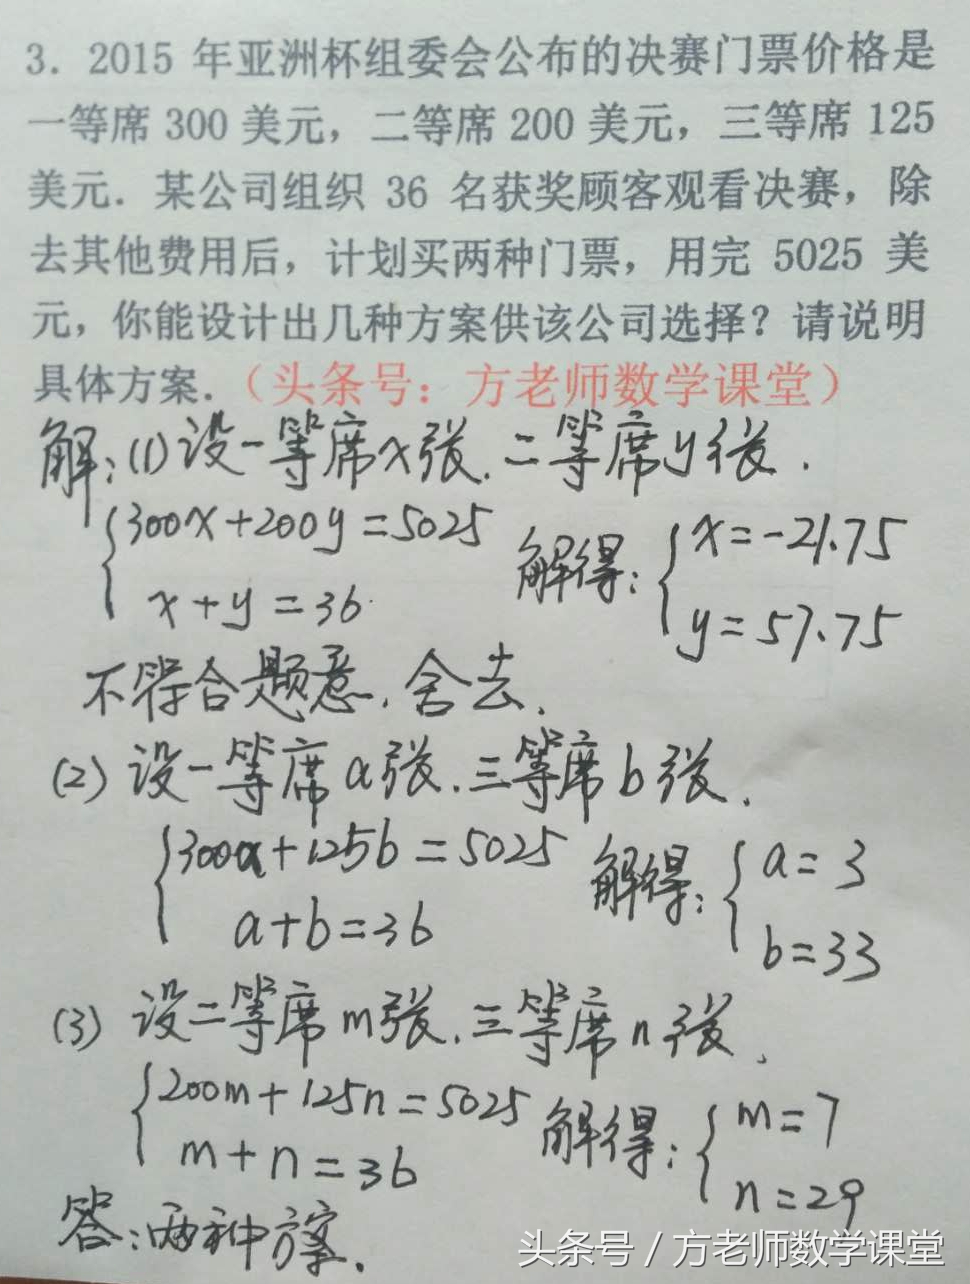 3. 2015 年亚洲杯组委会公布的决赛门票价格是
一等席 300 美元，二等席 200 美元，三等席 125
美元．某公司组织 36 名获奖顾客观看决赛，除
去其他费用后，计划买两种门票，用完 5025 美
元，你能设计出几种方案供该公司选择？请说明
具体方案．（头条号：方老师数学课堂）
解：(1)设一等席x张．二等席y张．
300x+200y=5025
x+y=36
解得：
x=-21.75
y=57.75
不符合题意．舍去．
(2) 设一等席a张．三等席b张．
300a+125b=5025
a+b=36
解得：
a=3
b=33
(3) 设二等席m张．三等席n张．
200m+125n=5025
m+n=36
解得：
m=7
n=29
答：两种方案．
头条号 / 方老师数学课堂